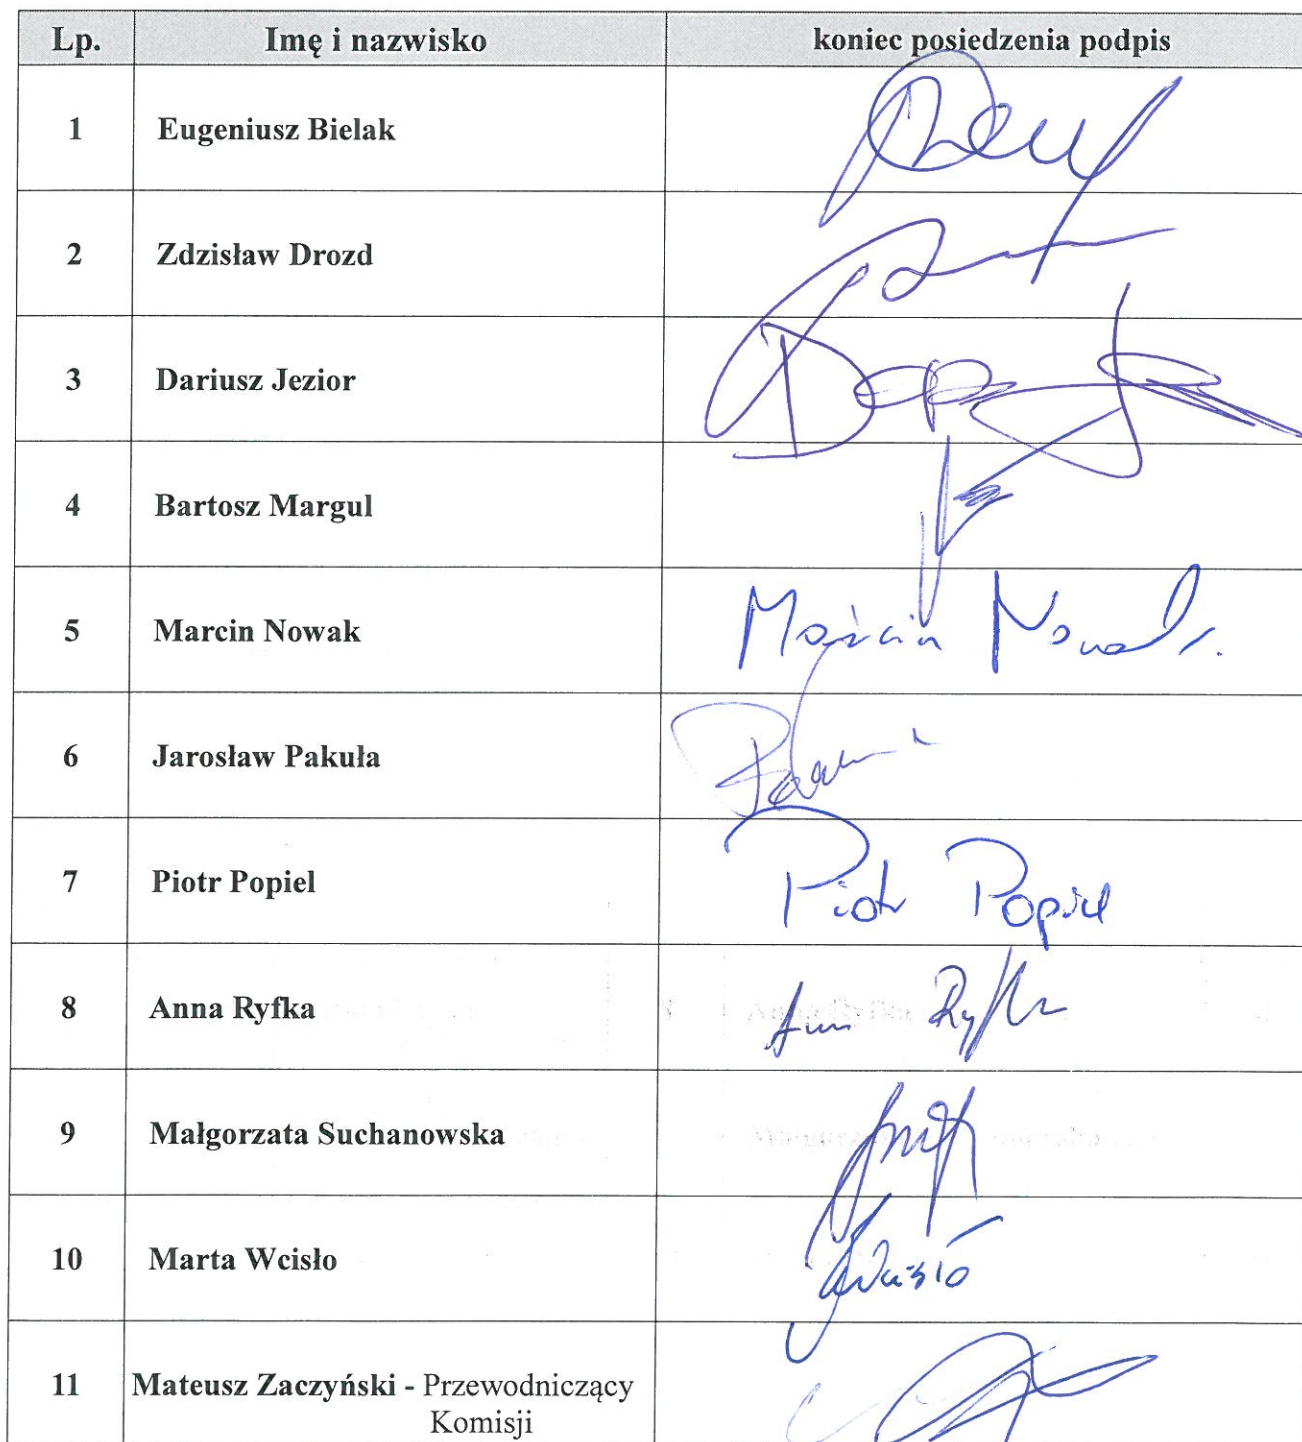 Lp. Imę i nazwisko koniec posiedzenia podpis
1 Eugeniusz Bielak
2 Zdzisław Drozd
3 Dariusz Jezior
4 Bartosz Margul
5 Marcin Nowak Marcin Nowak
6 Jarosław Pakuła
7 Piotr Popiel Piotr Popiel
8 Anna Ryfka
9 Małgorzata Suchanowska
10 Marta Wcisło
11 Mateusz Zaczyński - Przewodniczący
Komisji